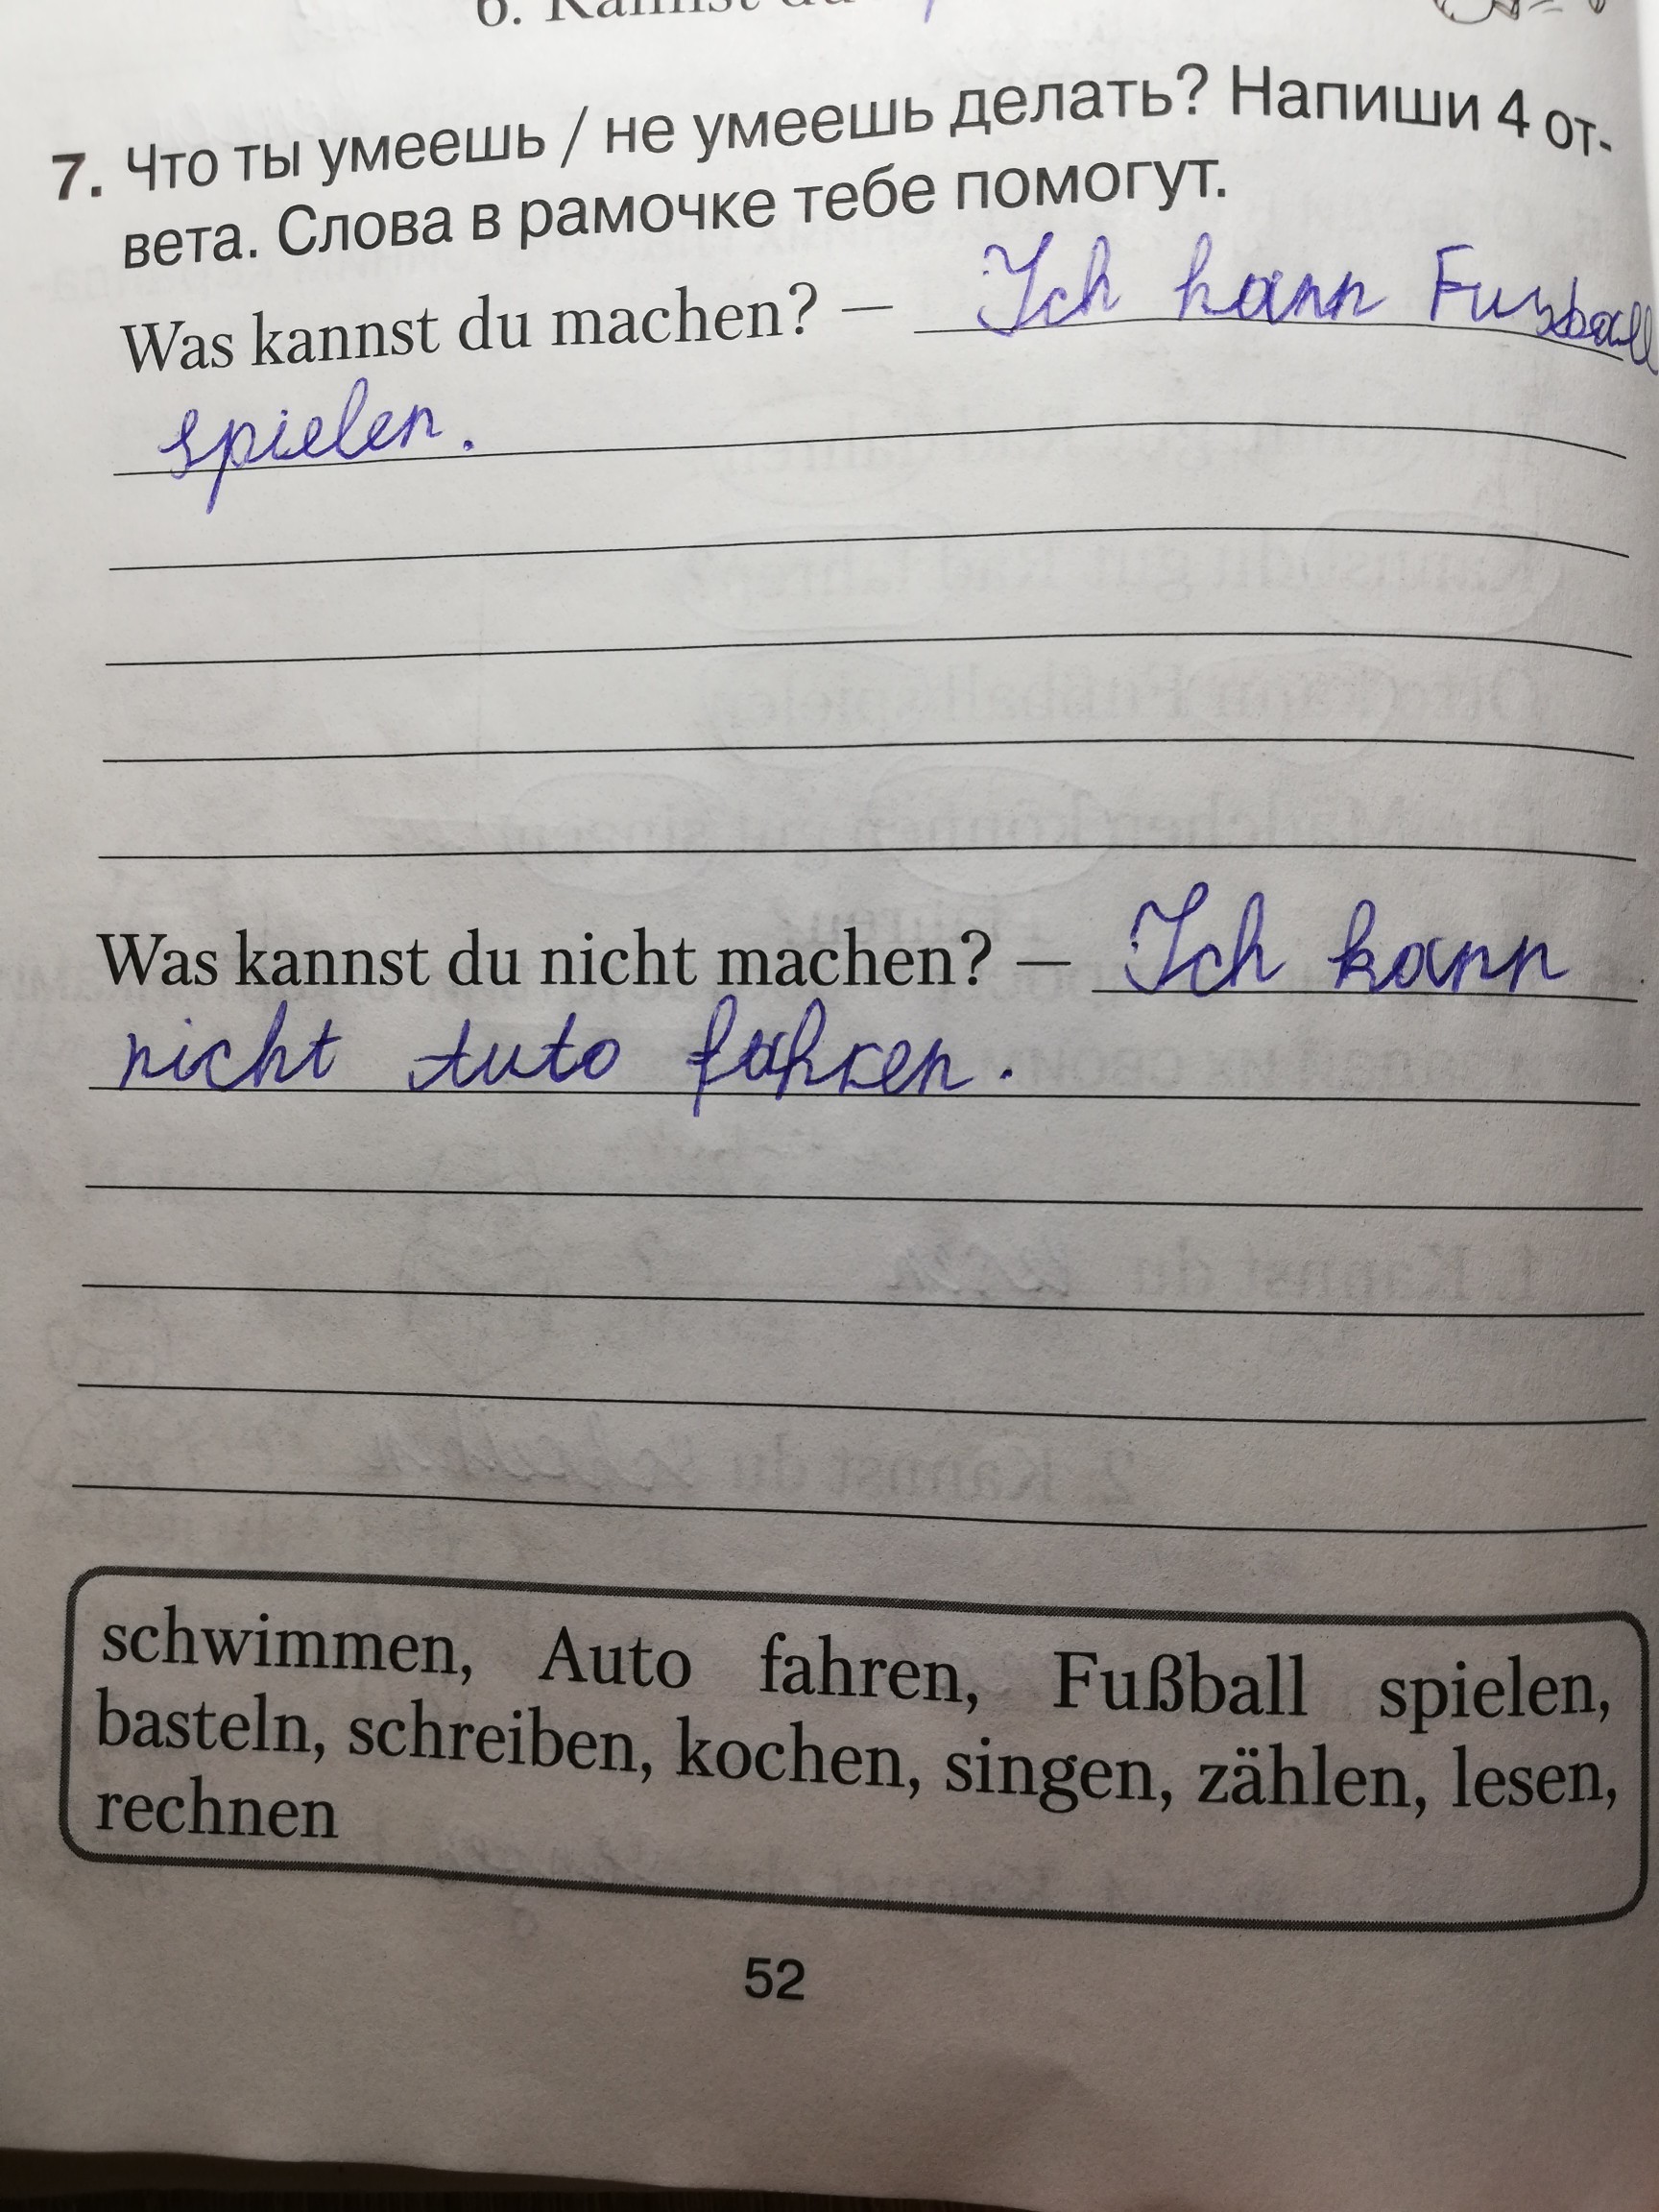 6. Kannst du
7. Что ты умеешь / не умеешь делать? Напиши 4 от-
вета. Слова в рамочке тебе помогут.
Was kannst du machen? — Ich kann Fussball
spielen.
Was kannst du nicht machen? — Ich kann
nicht Auto fahren.
schwimmen, Auto fahren, Fußball spielen,
basteln, schreiben, kochen, singen, zählen, lesen,
rechnen
52